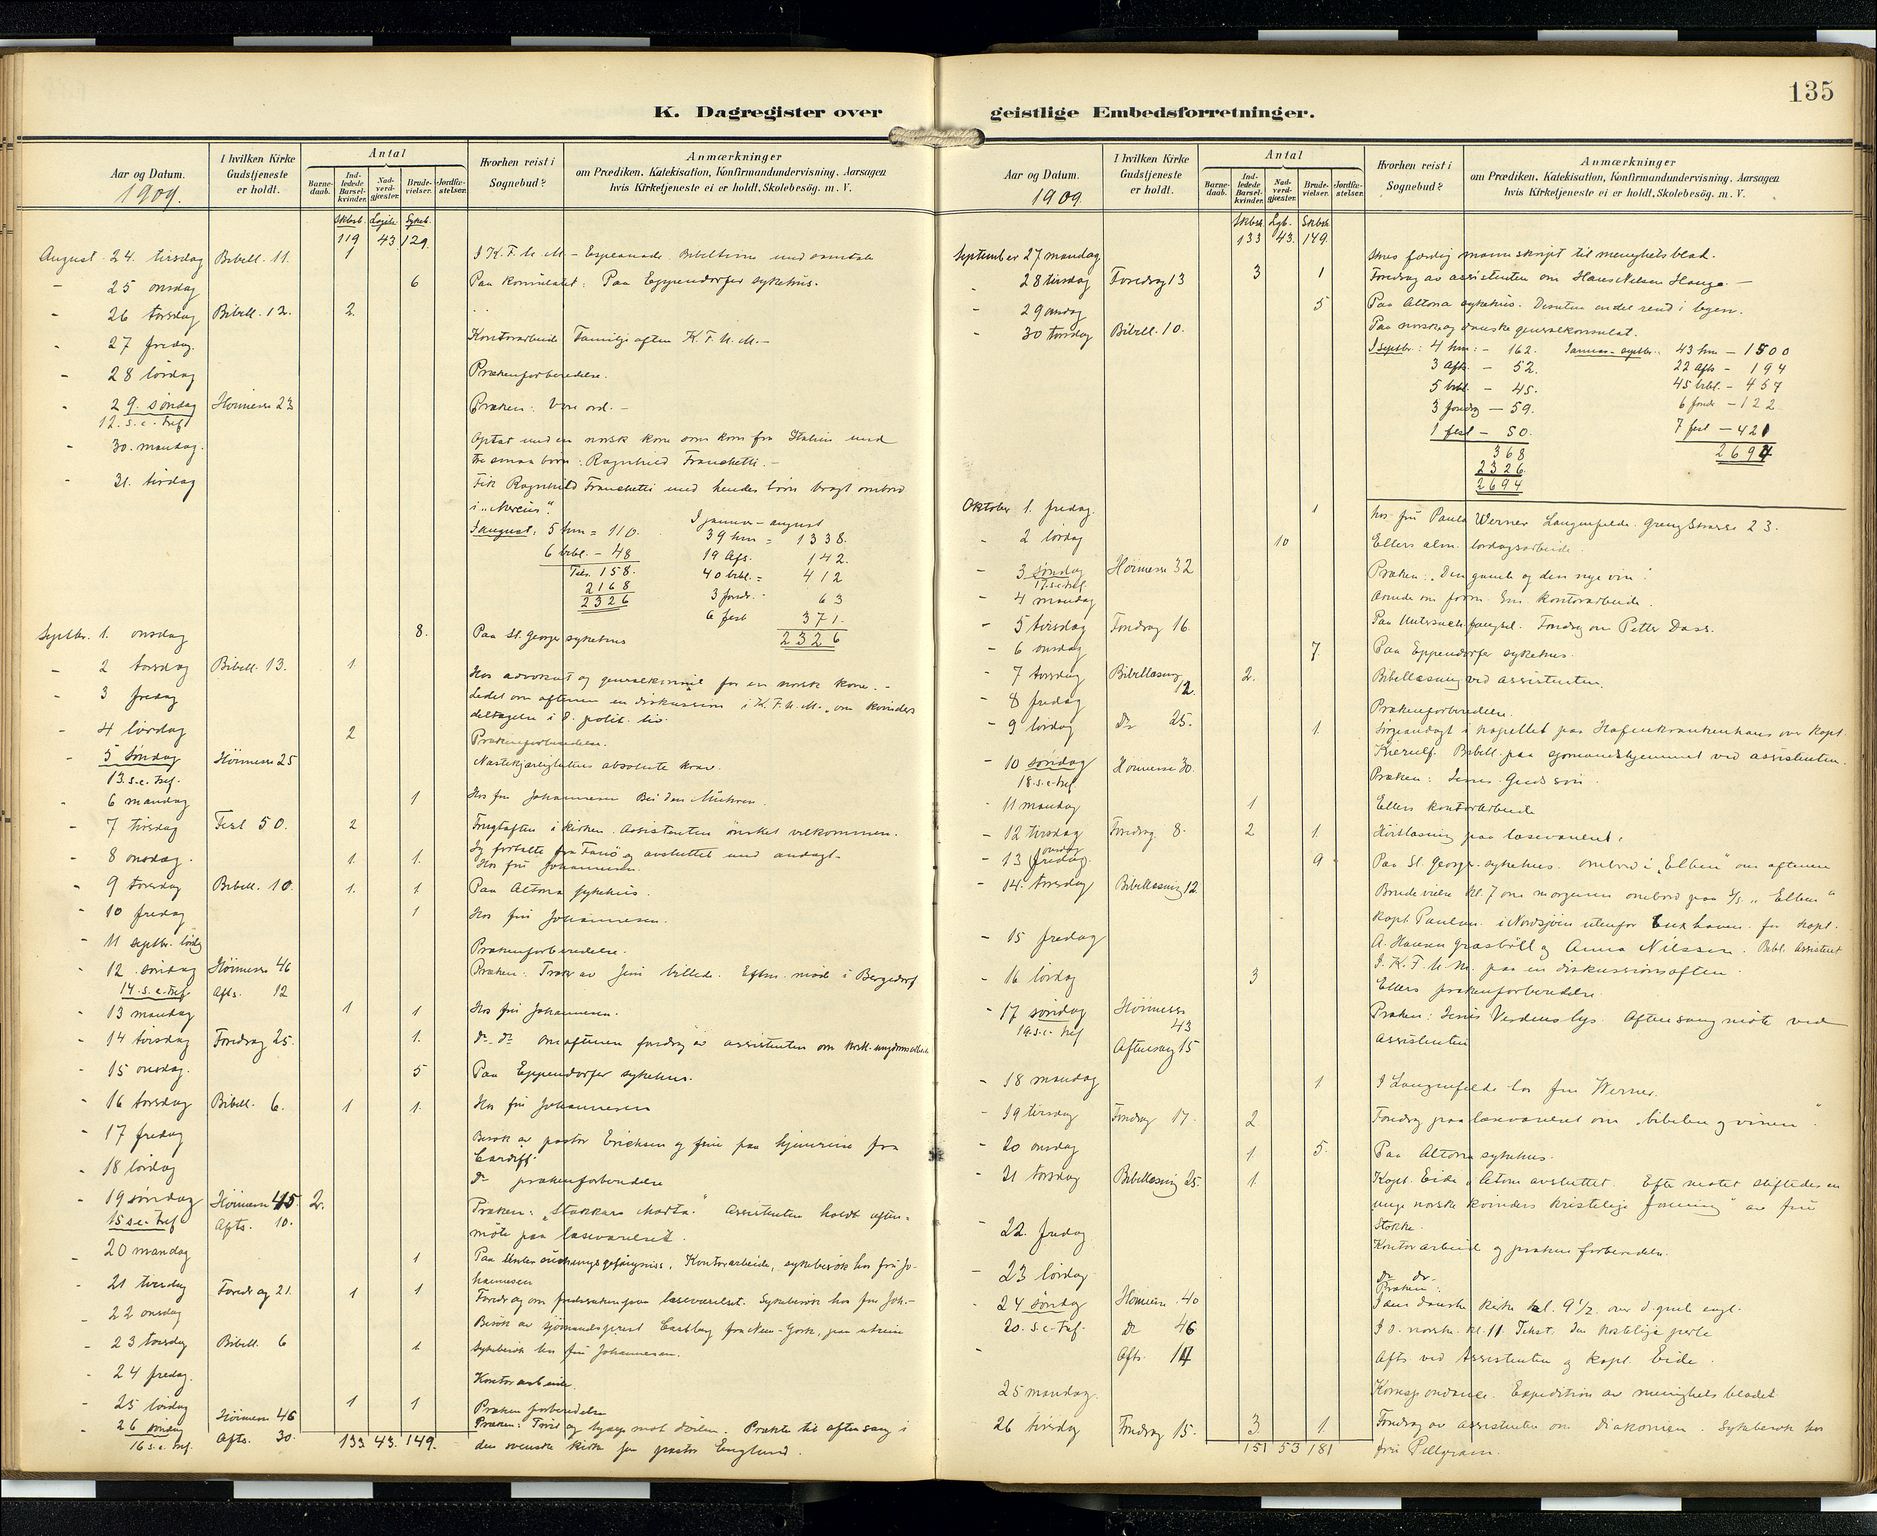 K. Dagregister over
Aar og Datum.
1909.
I hvilken Kirke
Gudstjeneste
er holdt.
Antal
Barne-
daab.
Ind-
ledede
Barsel-
kvinder.
Nad-
verd-
gjæster.
Brude-
vielser.
Jordfæ-
stelser.
Hvorhen reist i
Sognebud?
Anmærkninger
om Prædiken, Katekisation, Konfirmandundervisning. Aarsagen
hvis Kirketjeneste ei er holdt, Skolebesøg. m. V.
Skbsb. Logib. Sykeb.
119 43 129.
August 24. tirsdag Bibell. 11. 1 I K. F. U. M. - Esplanade. Bibeltime med samtale
- 25 onsdag 6 Paa konsulatet. Paa Eppendorfer sykehus.
- 26 torsdag Bibell. 12. 2.
- 27 fredag. Kontorarbeide Familjeaften K. F. U. M. -
- 28 lørdag Prækenforberedelse.
- 29. søndag Høimesse 23 Præken: Vore ord. -
12. s. e. tref.
- 30. mandag. Optat med en norsk kone som kom fra Italien med
tre smaa børn: Ragnhild Franchetti. -
- 31. tirsdag Fik Ragnhild Franchetti med hendes børn bragt ombord
i "Mercur".
I august: 5 hm = 110.
6 bibl. - 48
Tils. 158.
2168
2326
I januar - august
39 hm = 1338.
19 Afts. 142.
40 bibl. = 412
3 fordr. 63
6 fest 371.
2326
Septbr. 1. onsdag 8. Paa St. Georgs sykehus
- 2 torsdag Bibell. 13. 1. Hos advokat og generalkonsul for en norsk kone. -
- 3 fredag Ledet om aftenen en diskussion i K. F. U. M. om kvinders
deltagelse i d. polit. liv.
- 4 lørdag 2 Prækenforberedelse.
- 5 søndag Høimesse 25 Næstekjærlighetens absolute krav.
13. s. e. tref.
- 6 mandag 1 Hos fru Johannesen Bei den Mühren.
- 7 tirsdag Fest 50. 2 Frugtaften i kirken. Assistenten ønsket velkommen.
Jeg fortalte fra Fanø og avsluttet med andagt.
- 8 onsdag. 1. 1. Hos fru Johannesen.
- 9 torsdag Bibell. 10. 1. 1 Paa Altona sykehus.
- 10 fredag 1 Hos fru Johannesen.
- 11 septbr. lørdg Prækenforberedelse.
- 12. søndag Høimesse 46 Præken: Træk av Jesu billede. Eftm. møde i Bergedorf
14. s. e. tref. Afts. 12
- 13 mandag 1 1 Hos fru Johannesen.
- 14 tirsdag Foredrag 25. 1. do. do. Om aftenen foredrag av assistenten om kirkl. ungdomsarbeide
- 15 onsdag. 5 Paa Eppendorfer sykehus.
- 16 torsdag Bibell. 6. 1 1. Hos fru Johannesen
- 17 fredag Besøk av pastor Erichsen og frue paa hjemreise fra
Cardiff.
- 18 lørdag do prækenforberedelse
- 19 søndag Høimesse 45. 2. Præken: "Stakkars Marta." Assistenten holdt aften-
15 s. e. tref Afts. 10. møte paa læseværelset.
- 20 mandag 1 Paa Untersuchungsgefängniss. Kontorarbeide, sykebesøk hos fru Jo-
hannesen
- 21 tirsdag Foredrag 21. 1 1 Foredrag om fredssaken paa læseværelset. Sykebesøk hos fru Joh.-
- 22 onsdag Besøk av sjømandsprest Castberg fra New-York, paa utreise
- 23 torsdag Bibell. 6 1 Sykebesøk hos fru Johannesen.
- 24 fredag. Kontorarbeide.
- 25 lørdag 1 1 Prækenforberedelse
26 søndag Høimesse 46
16 s. e. tref. Afts. 30. Præken: Tvist og hjælp mot døden. Prækte til aftensang i
133 43. 149. den svenske kirke for pastor Englund.
geistlige Embedsforretninger.
135
Aar og Datum.
1909
I hvilken Kirke
Gudstjeneste
er holdt.
Antal
Barne-
daab.
Ind-
ledede
Barsel-
kvinder.
Nad-
verd-
gjæster.
Brude-
vielser.
Jordfæ-
stelser.
Hvorhen reist i
Sognebud?
Anmærkninger
om Prædiken, Katekisation, Konfirmandundervisning. Aarsagen
hvis Kirketjeneste ei er holdt, Skolebesög. m. V.
Skbsb. Lgb. Skbsb.
133 43. 149.
September 27 mandag Skrev færdig manuskript til menighetsblad.
- 28 tirsdag Foredrag 13 3 1 Foredrag av assistenten om Hans Nielsen Hauge. -
- 29 onsdag 5 Paa Altona sykehus. Desuten endel rend i byen.
- 30 torsdag Bibell. 10. Paa norske og danske generalkonsulat.
I septbr: 4 hm: - 162.
3 Aft. - 52.
5 bibl. - 45.
3 foredrag - 59.
1 fest - 50.
368
2326
2694
Januar - septbr. 43 hm - 1500
22 Afts - 194
45 bibl. - 457
6 fordr - 122
7 fest - 421
2694
Oktober 1. fredag. 1 hos fru Paula Werner Langenfelde. Grenzstrasse 23.
- 2 lørdag 10 Ellers alm. lørdagsarbeide.
- 3 søndag Høimesse 32 Præken: "Den gamle og den nye vin".
17. s. e. tref.
- 4 mandag Ærende om form. Em. kontorarbeide.
- 5 tirsdag Foredrag 16. Paa Untersuch.fængsel. Foredrag om Petter Dass.
- 6 onsdag 7 Paa Eppendorfer sykehus.
- 7 torsdag Bibellæsning 12. 2. Bibellæsning ved assistenten.
- 8 fredag Prækenforberedelse.
- 9 lørdag do 25. 1. Sørgeandagt i kapellet paa Hafenkrankenhaus over kapt.
Kierulf. Bibell. paa sjømandshjemmet ved assistenten.
- 10 søndag Høimesse 30. Præken: Jesus Guds søn.
18. s. e. tref.
- 11 mandag 1 Ellers kontorarbeide
- 12 tirsdag Foredrag. 8. 2 1. Høitlæsning paa læseværelset.
- 13 onsdag fredag. 9 Paa St. Georgs sykehus. Ombord i "Elben" om aftenen
- 14. torsdag Bibellæsning 12. Brudevielse kl. 7 om morgenen ombord paa S/S. "Elben"
kapt. Paulsen. i Nordsjøen utenfor Cuxhaven. for kapt.
- 15 fredag A. Hansen Græsbøll og Anna Nilssen. Bibl. Assistent
I. K. F. U. M. paa en diskussionsaften.
- 16 lørdag 3 Ellers prækenforberedelse.
- 17 søndag Høimesse 43 Præken: Jesus Verdens lys. Aftensangmøte ved
19. s. e. tref Aftensang 15 assistenten
- 18 mandag 1 I Langenfelde hos fru Werner.
- 19 tirsdag Foredrag 17. 2 Foredrag paa læseværelset om "bibelen og vinen".
- 20 onsdag 1 5. Paa Altona sykehus.
- 21 torsdag Bibellæsning 25. 1 Kapt. Eide, "Atom" avsluttet. Efter møtet stiftedes en
unge norske kvinders kristelige forening" av fru
Stokke.
- 22. fredag Kontorarbeid og prækenforberedelse.
- 23 lørdag do do.
- 24 søndag Høimesse 40 Præken: I den danske kirke kl. 9 1/2 over d. gml. evgl.
20. s. e. tref. do 46 I d. norske. kl. 11. Tekst. den kostelige perle
Afts. 14 Afts ved Assistenten og kapt. Eide.
25 mandag. Korrespondance. Expedition av menighetsbladet
26 tirsdag Foredrag 15. 3. 1 Foredrag av assistenten om Diakonien. Sykebesøk hos
151 53 181 fru Pillgram.